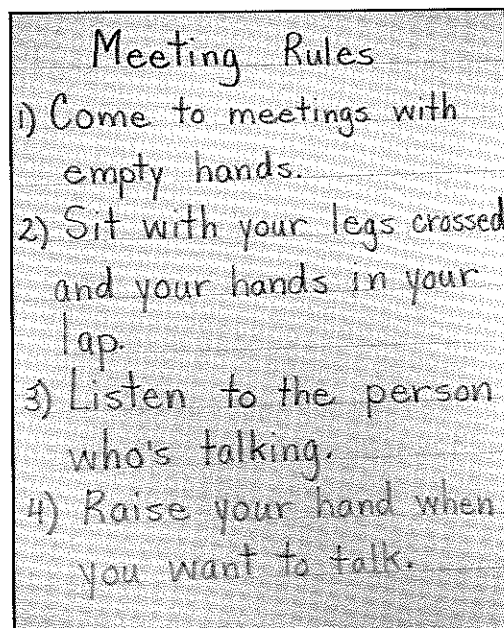 Meeting Rules
1) Come to meetings with
empty hands.
2) Sit with your legs crossed
and your hands in your
lap.
3) Listen to the person
who's talking.
4) Raise your hand when
you want to talk.